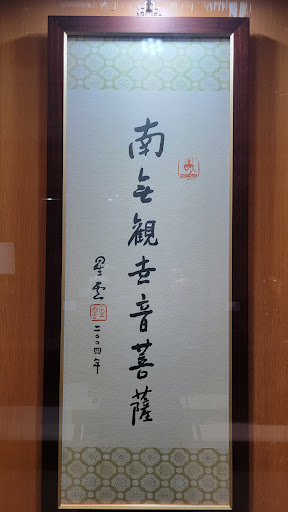 南无觀世音菩薩
星雲
二００四年